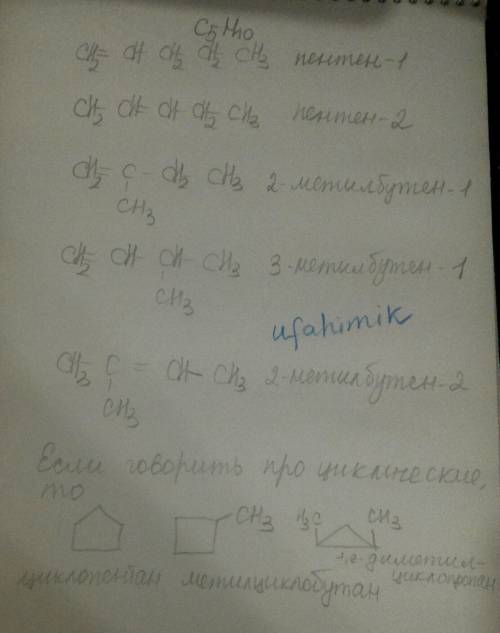 C5H10
CH2= CH CH2 CH2 CH3 пентен-1
CH2 CH= CH CH2 CH3 пентен-2
CH2= C - CH2 CH3 2-метилбутен-1
CH3
CH2= CH CH - CH3 3-метилбутен-1
CH3
ufahimik
CH3 C = CH- CH3 2-метилбутен-2
CH3
Если говорить про циклические,
то
CH3 H3C CH3
1,2-диметил-
циклопентан метилциклобутан циклопропан